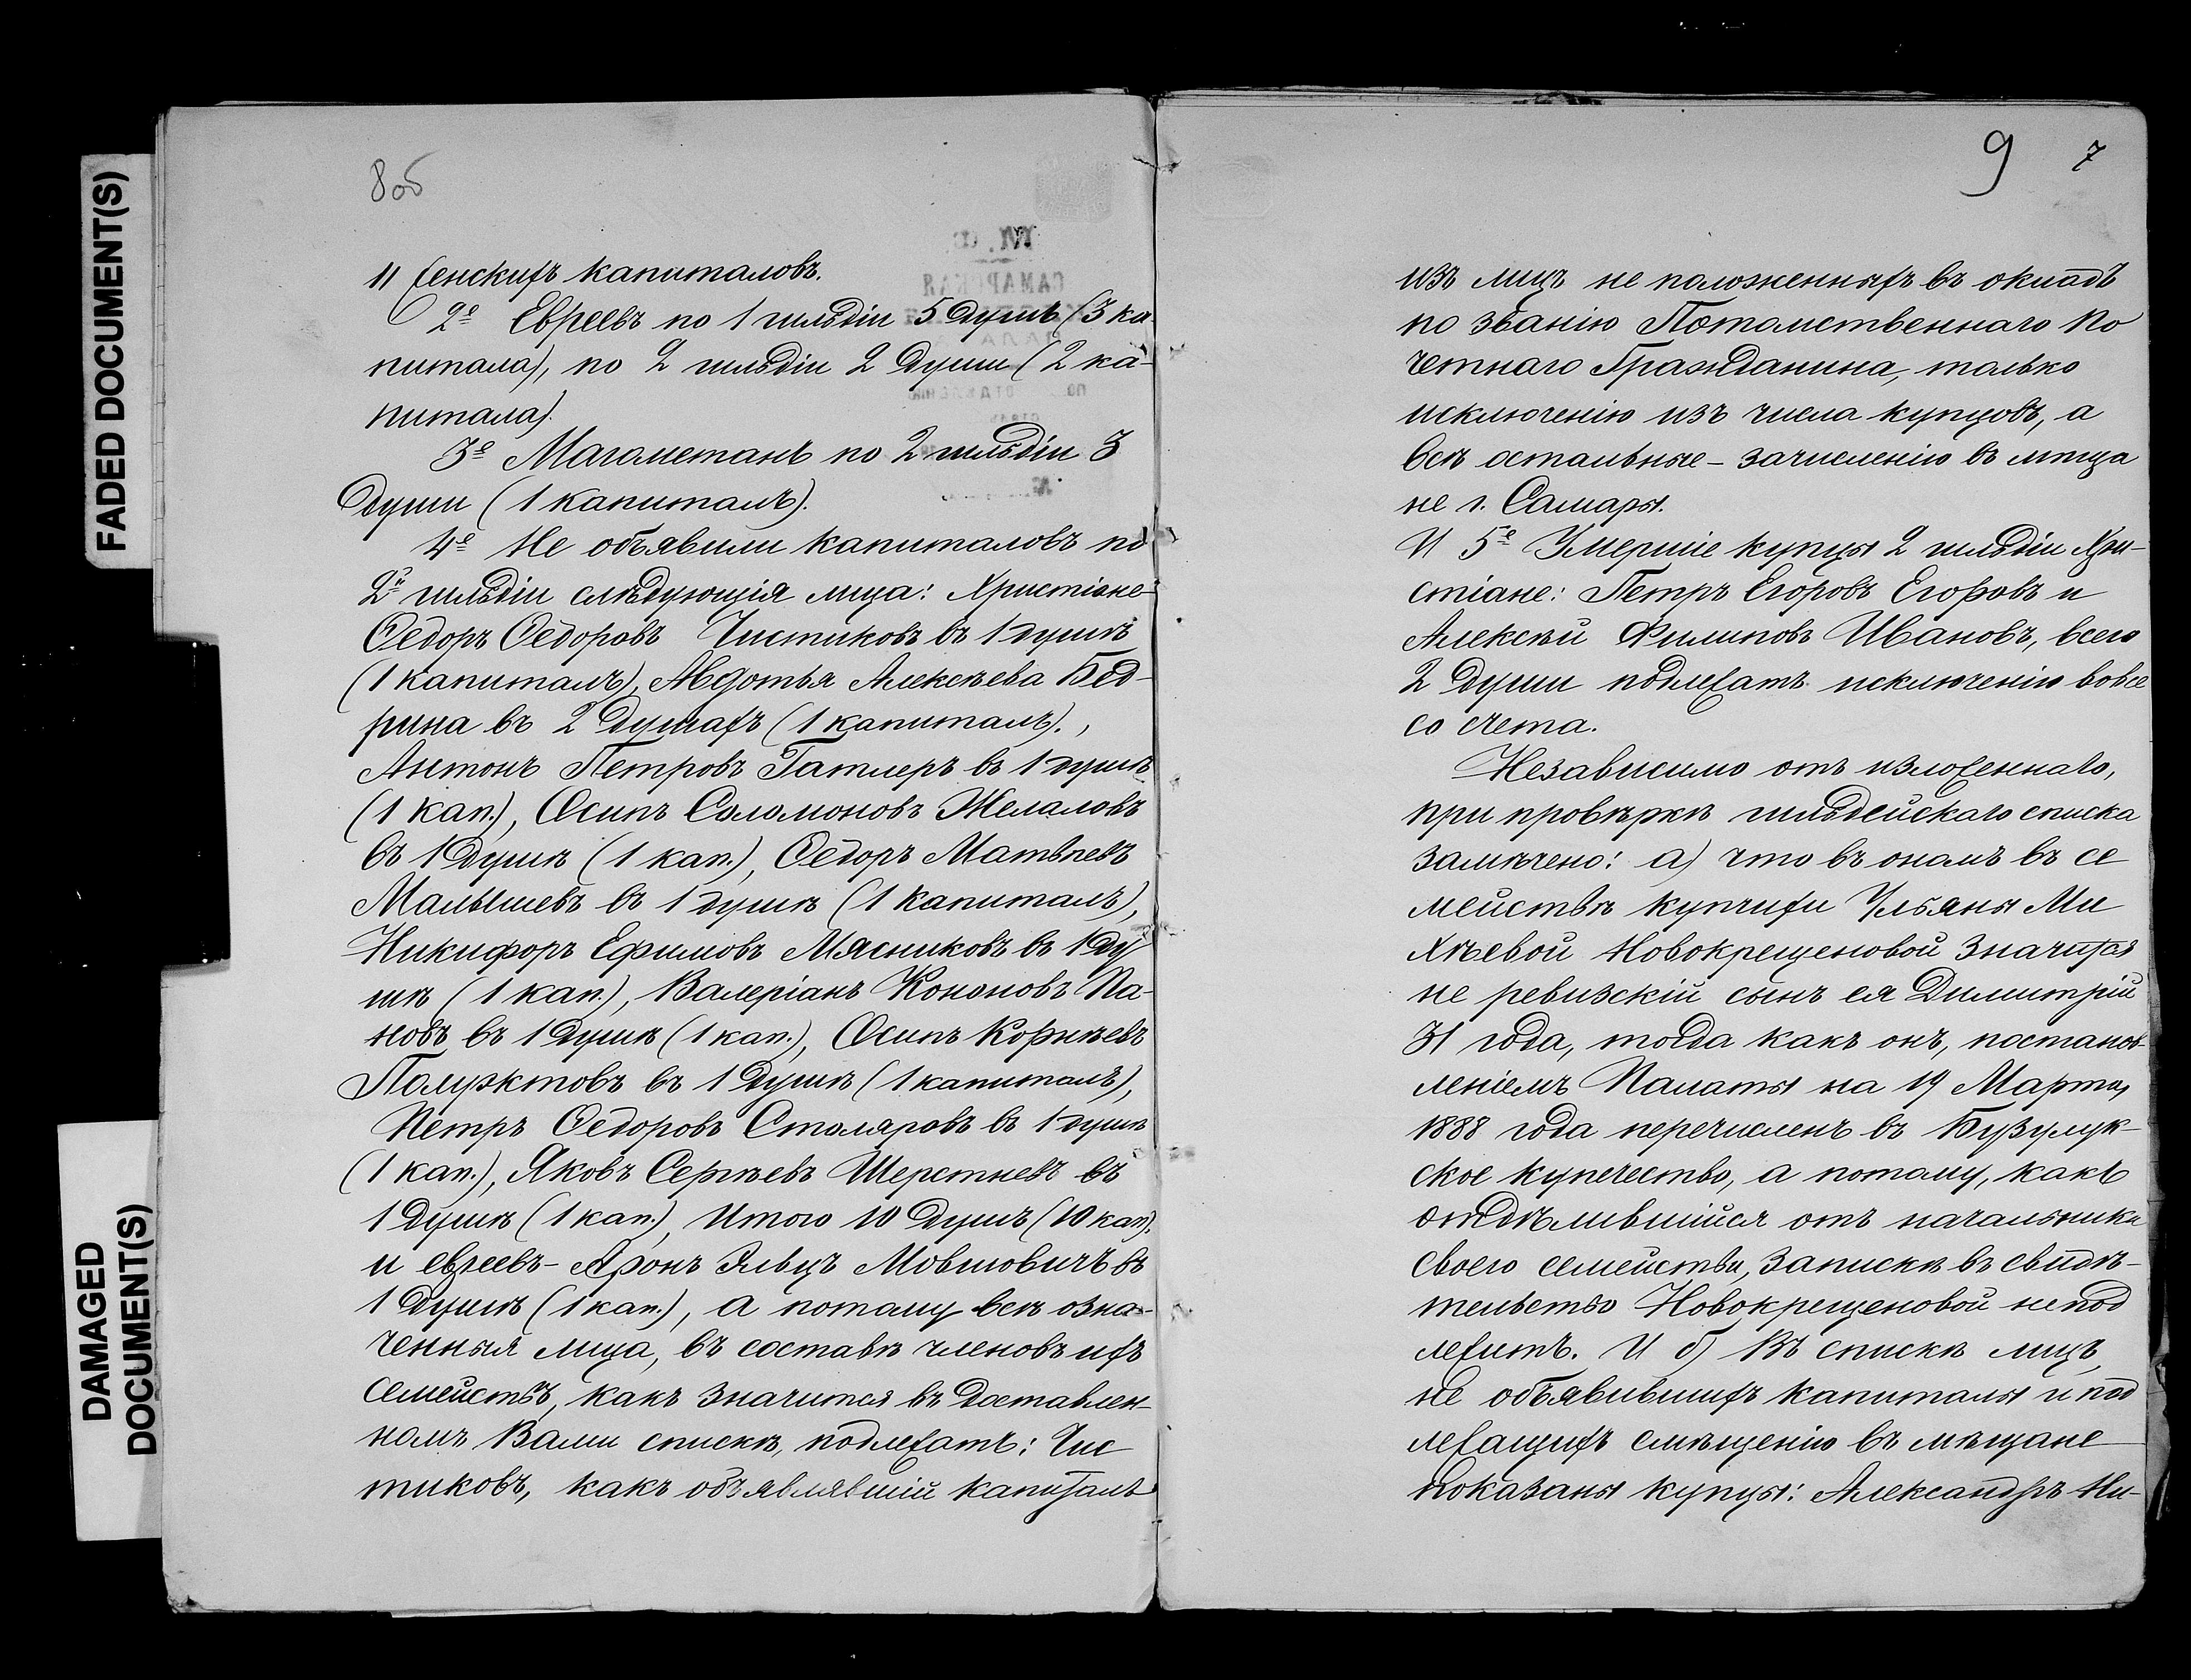 FADED DOCUMENT(S)
DAMAGED
DOCUMENT(S)
8об
11 женскихъ капиталовъ.
2е Евреевъ по 1 гильдіи 5 душъ (3 ка-
питала), по 2 гильдіи 2 души (2 ка-
питала).
3е Магометанъ по 2 гильдіи 3
души (1 капиталъ).
4е Не объявили капиталовъ по
2й гильдіи слѣдующія лица: Христіане-
Ѳедоръ Ѳедоровъ Чистиковъ въ 1 душѣ
(1 капиталъ), Авдотья Алексѣева Бед-
рина въ 2 душахъ (1 капиталъ).,
Антонъ Петровъ Гатлеръ въ 1 душѣ
(1 кап.), Осипъ Соломоновъ Желаловъ
въ 1 душѣ (1 кап.), Ѳедоръ Матвѣевъ
Малышевъ въ 1 душѣ (1 капиталъ),
Никифоръ Ефимовъ Мясниковъ въ 1 ду
шѣ (1 кап.), Валеріанъ Кононовъ Па-
новъ въ 1 душѣ (1 кап.), Осипъ Корнѣевъ
Полуэктовъ въ 1 душѣ (1 капиталъ),
Петръ Ѳедоровъ Столяровъ въ 1 душѣ
(1 кап.), Яковъ Сергѣевъ Шерстневъ въ
1 душѣ (1 кап.), Итого 10 душъ (10 кап).
и евреевъ- Аронъ Эльцъ Мовшовичъ въ
1 душѣ (1 кап.), а потому всѣ озна-
ченныя лица, въ составѣ членовъ ихъ
семействъ, какъ значится въ доставлен-
номъ Вами спискѣ, подлежатъ: Чис
тиковъ, какъ объявлявшій капиталъ
9 7
изъ лицъ не положенныхъ въ окладъ
по званію Потомственнаго По
четнаго Гражданина, только
исключенію изъ числа купцовъ, а
всѣ остальные- зачисленію въ мѣща
не г. Самары.
И 5е Умершіе купцы 2 гильдіи Хри-
стіане: Петръ Егоровъ Егоровъ и
Алексѣй Филиповъ Ивановъ, всего
2 души подлежатъ исключенію вовсе
со счета.
Независимо отъ изложеннаго,
при провѣркѣ гильдейскаго списка
замѣчено: а) что въ ономъ въ се
мействѣ купчихи Ульяны Ми
хѣевой Новокрещеновой значится
не ревизскій сынъ ея Димитрій
31 года, тогда какъ онъ, постанов-
леніемъ Палаты на 19 Марта
1888 года перечисленъ въ Бузулук-
ское купечество, а потому, какъ
отдѣлившійся отъ начальника
своего семейства, запискѣ въ свидѣ-
тельство Новокрещеновой не под
лежитъ. И б) Въ спискѣ лицъ,
не объявившихъ капиталы и под
лежащихъ смѣщенію въ мѣщане
показаны купцы: Александръ Ни-